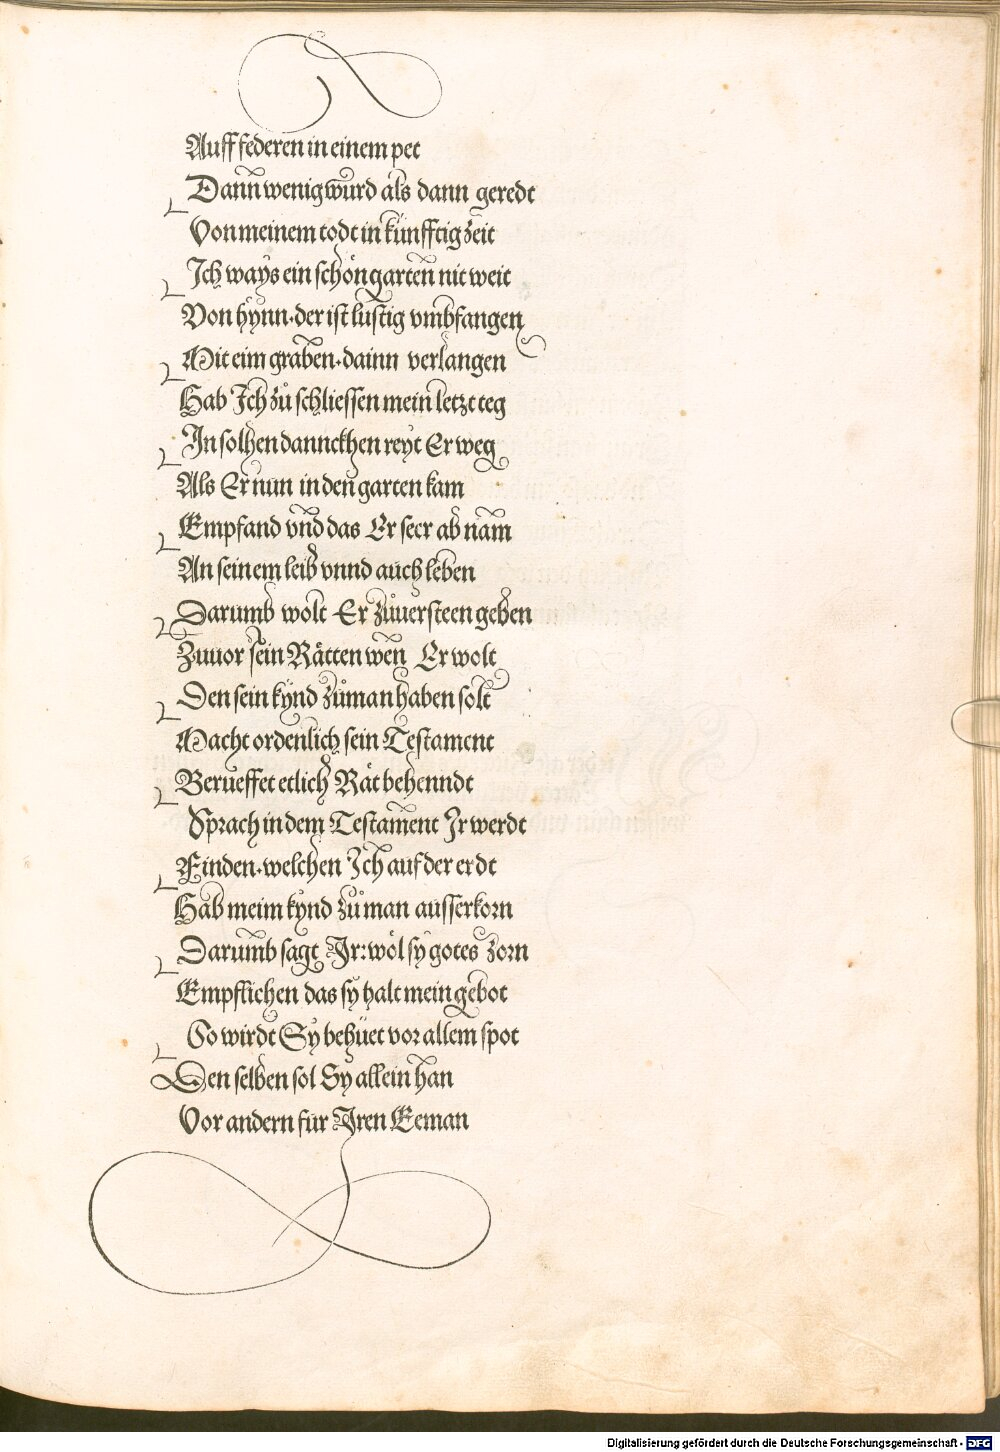 Auff federen in einem pet
Dann wenig wurd als dann geredt
Von meinem todt in kunfftig zeit
Ich ways ein schön garten nit weit
Von hÿnn · der ist lustig vmbfangen
Mit eim graben · dainn verlangen
Hab Ich zů schliessen mein letzt teg
In solhen dannckhen reyt Er weg
Als Er nun in den garten kam
Empfand vnd das Er seer ab nam
An seinem leib vnnd auch leben
Darumb wolt Er zůuersteen geben
Zuuor sein Rätten wen Er wolt
Den sein kÿnd zůman haben solt
Macht ordenlich sein Testament
Berueffet etlich Rät behenndt
Sprach in dem Testament Ir werdt
Finden · welchen Ich auf der erdt
Hab meim kÿnd zů man ausserkorn
Darumb sagt Ir: wöl sÿ gotes zorn
Empflichen das sÿ halt mein gebot
So wirdt Sÿ behüet vor allem spot
Den selben sol Sÿ allein han
Vor andern fur Iren Eeman
Digitalisierung gefördert durch die Deutsche Forschungsgemeinschaft - DFG